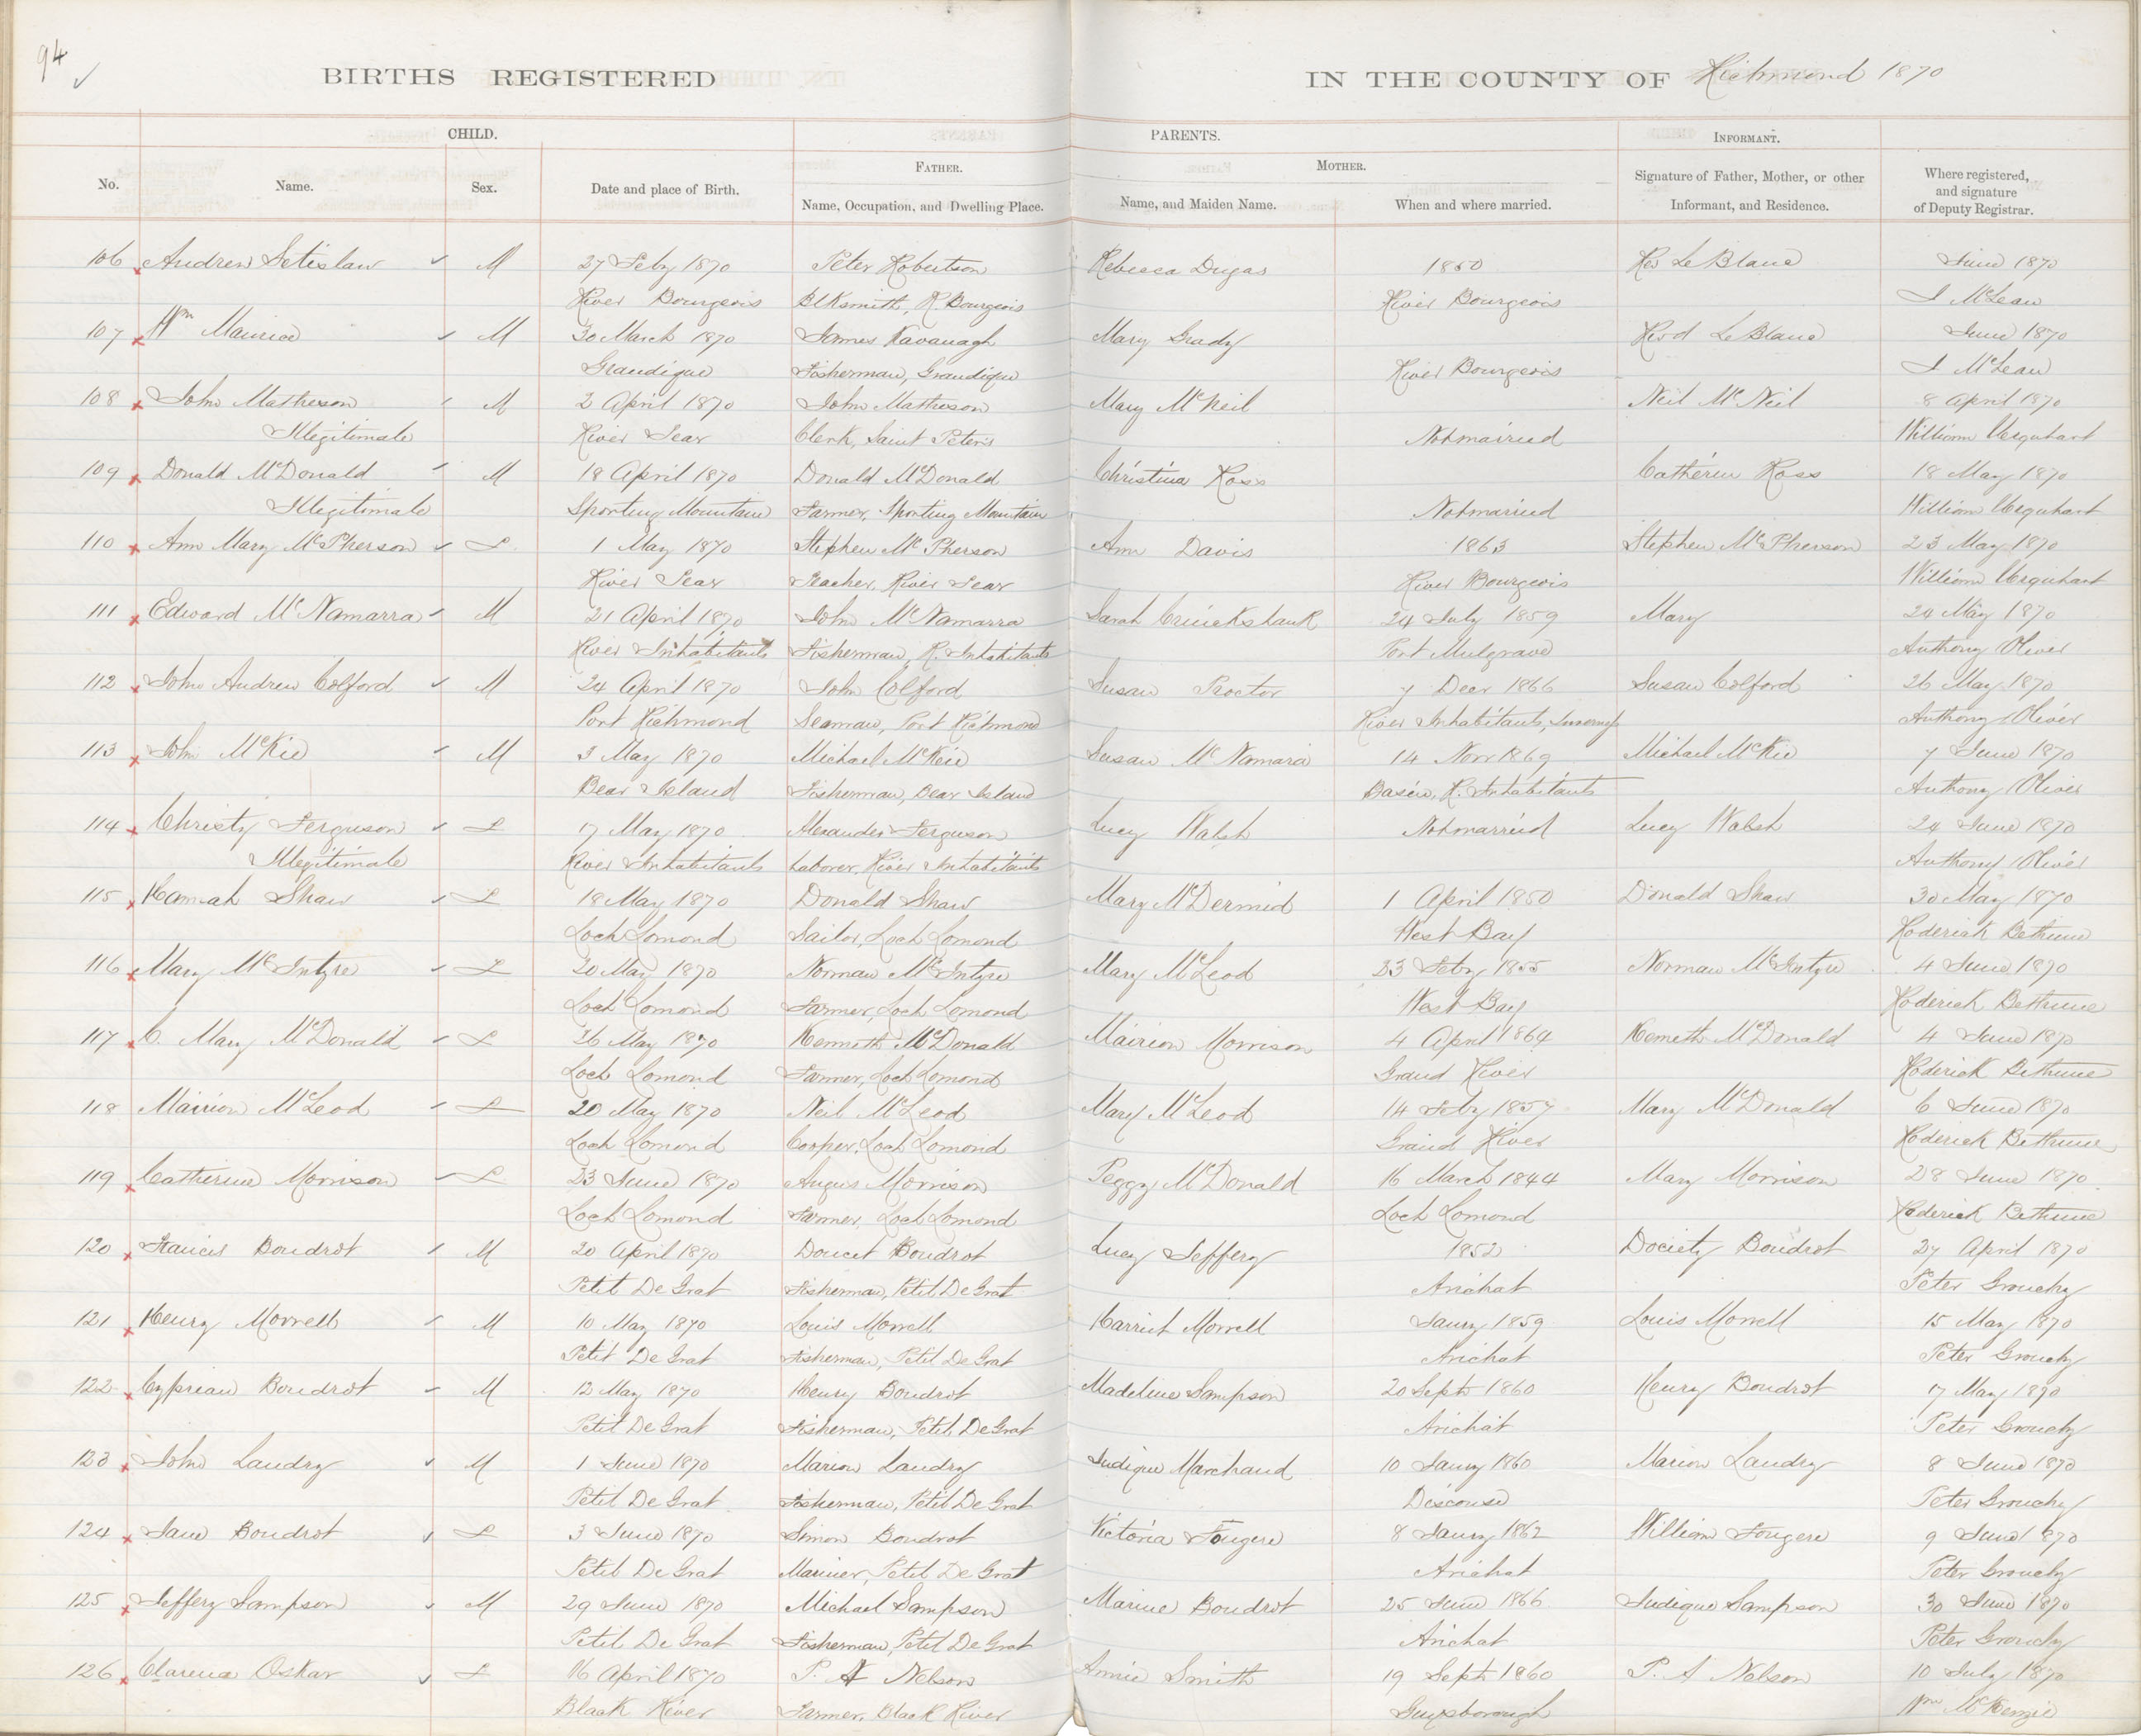 94
BIRTHS REGISTERED IN THE COUNTY OF Richmond 1870
CHILD. PARENTS. INFORMANT.
FATHER. MOTHER.
No. Name. Sex. Date and place of Birth. Name, Occupation, and Dwelling Place. Name, and Maiden Name. When and where married. Signature of Father, Mother, or other Informant, and Residence. Where registered, and signature of Deputy Registrar.
106 Andrew M 27 Feby 1870 Peter Robertson Rebecca Dugas 1850 LeBlanc June 1870
River Bourgeois Blksmith, R Bourgeois River Bourgeois J McLean
107 Wm Maurice M 30 March 1870 James Kavanagh Mary Grady LeBlanc June 1870
Grandique Fisherman, Grandique River Bourgeois J McLean
108 John Matheson M 2 April 1870 John Matheson Mary McNeil Neil McNeil 8 April 1870
Illegitimate River Tear Clerk, Saint Peters Not married William Urquhart
109 Donald McDonald M 18 April 1870 Donald McDonald Christina Ross Catherine Ross 18 May 1870
Illegitimate Sporting Mountain Farmer, Sporting Mountain Not married William Urquhart
110 Ann Mary McPherson F 1 May 1870 Stephen McPherson Ann Davis 1863 Stephen McPherson 23 May 1870
River Tear Teacher, River Tear River Bourgeois William Urquhart
111 Edward McNamarra M 21 April 1870 John McNamarra Sarah Cruickshank 24 July 1859 Mary 24 May 1870
River Inhabitants Fisherman, R. Inhabitants Port Mulgrave Anthony Oliver
112 John Andrew Colford M 24 April 1870 John Colford Susan Proctor 7 Decr 1866 Susan Colford 26 May 1870
Port Richmond Seaman, Port Richmond River Inhabitants, Inverness Anthony Oliver
113 John McKie M 3 May 1870 Michael McKie Susan McNamara 14 Novr 1869 Michael McKie 7 June 1870
Bear Island Fisherman, Bear Island Basin, R. Inhabitants Anthony Oliver
114 Christy Ferguson F 17 May 1870 Alexander Ferguson Lucy Walsh Not married Lucy Walsh 24 June 1870
Illegitimate River Inhabitants Laborer, River Inhabitants Anthony Oliver
115 Hannah Shaw F 18 May 1870 Donald Shaw Mary McDermid 1 April 1850 Donald Shaw 30 May 1870
Loch Lomond Sailor, Loch Lomond West Bay Roderick Bethune
116 Mary McIntyre F 20 May 1870 Norman McIntyre Mary McLeod 23 Feby 1855 Norman McIntyre 4 June 1870
Loch Lomond Farmer, Loch Lomond West Bay Roderick Bethune
117 C. Mary McDonald F 26 May 1870 Kenneth McDonald Mairion Morrison 4 April 1864 Kenneth McDonald 4 June 1870
Loch Lomond Farmer, Loch Lomond Grand River Roderick Bethune
118 Mairion McLeod F 20 May 1870 Neil McLeod Mary McLeod 14 Feby 1857 Mary McDonald 6 June 1870
Loch Lomond Cooper, Loch Lomond Grand River Roderick Bethune
119 Catherine Morrison F 23 June 1870 Angus Morrison Peggy McDonald 16 March 1844 Mary Morrison 28 June 1870
Loch Lomond Farmer, Loch Lomond Loch Lomond Roderick Bethune
120 Francis Boudrot M 20 April 1870 Doucet Boudrot Lucy Jeffery 1852 Dociety Boudrot 27 April 1870
Petit De Grat Fisherman, Petit De Grat Arichat Peter Grouchy
121 Henry Morrell M 10 May 1870 Louis Morrell Harriet Morrell Jany 1859 Louis Morrell 15 May 1870
Petit De Grat Fisherman, Petit De Grat Arichat Peter Grouchy
122 Cyprian Boudrot M 12 May 1870 Henry Boudrot Madeline Sampson 20 Sept 1860 Henry Boudrot 17 May 1870
Petit De Grat Fisherman, Petit De Grat Arichat Peter Grouchy
123 John Landry M 1 June 1870 Marion Landry Judique Marchand 10 Jany 1860 Marion Landry 8 June 1870
Petit De Grat Fisherman, Petit De Grat Descouse Peter Grouchy
124 Jane Boudrot F 3 June 1870 Simon Boudrot Victoria Fougere 8 Jany 1862 William Fougere 9 June 1870
Petit De Grat Mariner, Petit De Grat Arichat Peter Grouchy
125 Jeffery Sampson M 29 June 1870 Michael Sampson Marine Boudrot 25 June 1866 Judique Sampson 30 June 1870
Petit De Grat Fisherman, Petit De Grat Arichat Peter Grouchy
126 Clarence Oskar F 16 April 1870 P. A Nelson Annie Smith 19 Sept 1860 P. A Nelson 10 July 1870
Black River Farmer, Black River Guysborough Wm McKenzie